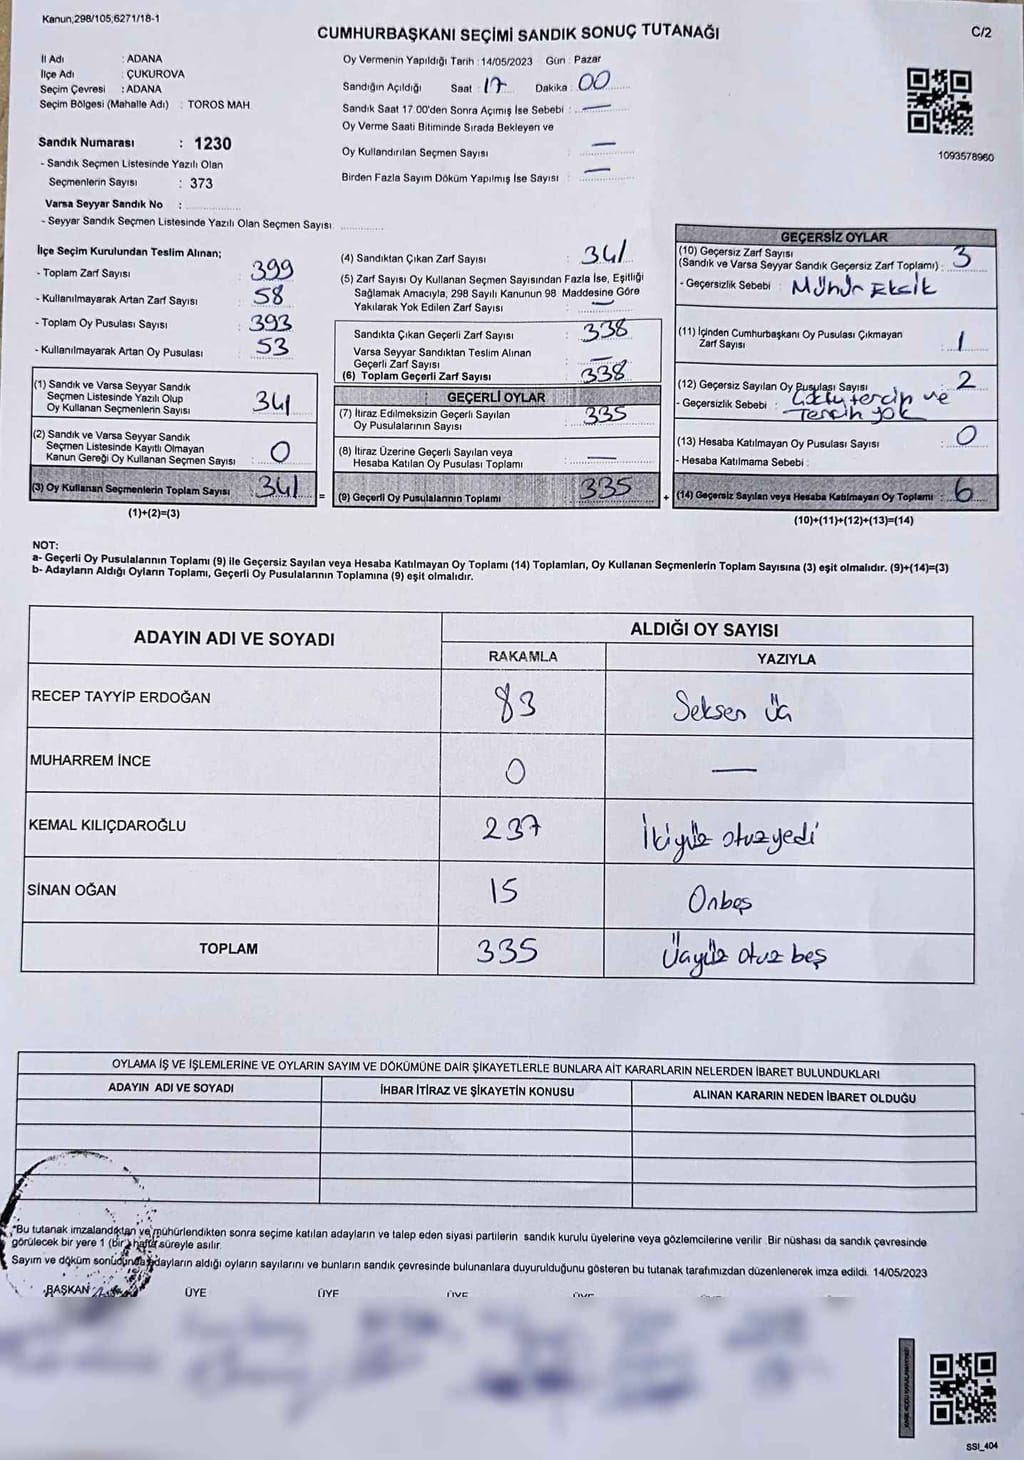 Kanun,298/105,6271/18-1
CUMHURBAŞKANI SEÇİMİ SANDIK SONUÇ TUTANAĞI
C/2
İl Adı : ADANA
İlçe Adı : ÇUKUROVA
Seçim Çevresi : ADANA
Seçim Bölgesi (Mahalle Adı) : TOROS MAH.
Sandık Numarası : 1230
- Sandık Seçmen Listesinde Yazılı Olan
Seçmenlerin Sayısı : 373
Varsa Seyyar Sandık No :
- Seyyar Sandık Seçmen Listesinde Yazılı Olan Seçmen Sayısı:
Oy Vermenin Yapıldığı Tarih : 14/05/2023 Gün : Pazar
Sandığın Açıldığı Saat : 17 Dakika : 00
Sandık Saat 17.00'den Sonra Açımış İse Sebebi : —
Oy Verme Saati Bitiminde Sırada Bekleyen ve
Oy Kullandırılan Seçmen Sayısı : —
Birden Fazla Sayım Döküm Yapılmış İse Sayısı : —
1093578960
İlçe Seçim Kurulundan Teslim Alınan;
- Toplam Zarf Sayısı : 399
- Kullanılmayarak Artan Zarf Sayısı : 58
- Toplam Oy Pusulası Sayısı : 393
- Kullanılmayarak Artan Oy Pusulası : 53
(1) Sandık ve Varsa Seyyar Sandık
Seçmen Listesinde Yazılı Olup
Oy Kullanan Seçmenlerin Sayısı : 341
(2) Sandık ve Varsa Seyyar Sandık
Seçmen Listesinde Kayıtlı Olmayan
Kanun Gereği Oy Kullanan Seçmen Sayısı : 0
(3) Oy Kullanan Seçmenlerin Toplam Sayısı : 341
(1)+(2)=(3)
(4) Sandıktan Çıkan Zarf Sayısı : 341
(5) Zarf Sayısı Oy Kullanan Seçmen Sayısından Fazla İse, Eşitliği
Sağlamak Amacıyla, 298 Sayılı Kanunun 98 Maddesine Göre
Yakılarak Yok Edilen Zarf Sayısı : —
Sandıkta Çıkan Geçerli Zarf Sayısı : 338
Varsa Seyyar Sandıktan Teslim Alınan
Geçerli Zarf Sayısı : —
(6) Toplam Geçerli Zarf Sayısı : 338
GEÇERLİ OYLAR
(7) İtiraz Edilmeksizin Geçerli Sayılan : 335
Oy Pusulalarının Sayısı
(8) İtiraz Üzerine Geçerli Sayılan veya
Hesaba Katılan Oy Pusulası Toplamı : —
= (9) Geçerli Oy Pusulalarının Toplamı : 335
GEÇERSİZ OYLAR
(10) Geçersiz Zarf Sayısı
(Sandık ve Varsa Seyyar Sandık Geçersiz Zarf Toplamı) : 3
- Geçersizlik Sebebi : Mühür Eksik
(11) İçinden Cumhurbaşkanı Oy Pusulası Çıkmayan
Zarf Sayısı : 1
(12) Geçersiz Sayılan Oy Pusulası Sayısı : 2
- Geçersizlik Sebebi : tercip ve
Tercih yok
(13) Hesaba Katılmayan Oy Pusulası Sayısı : 0
- Hesaba Katılmama Sebebi :
+ (14) Geçersiz Sayılan veya Hesaba Katılmayan Oy Toplamı : 6
(10)+(11)+(12)+(13)=(14)
NOT:
a- Geçerli Oy Pusulalarının Toplamı (9) ile Geçersiz Sayılan veya Hesaba Katılmayan Oy Toplamı (14) Toplamları, Oy Kullanan Seçmenlerin Toplam Sayısına (3) eşit olmalıdır. (9)+(14)=(3)
b- Adayların Aldığı Oyların Toplamı, Geçerli Oy Pusulalarının Toplamına (9) eşit olmalıdır.
ADAYIN ADI VE SOYADI
ALDIĞI OY SAYISI
RAKAMLA YAZIYLA
RECEP TAYYİP ERDOĞAN 83 Seksen Üç
MUHARREM İNCE 0 —
KEMAL KILIÇDAROĞLU 237 İkiyüz otuzyedi
SİNAN OĞAN 15 Onbeş
TOPLAM 335 Üçyüz otuz beş
OYLAMA İŞ VE İŞLEMLERİNE VE OYLARIN SAYIM VE DÖKÜMÜNE DAİR ŞİKAYETLERLE BUNLARA AİT KARARLARIN NELERDEN İBARET BULUNDUKLARI
ADAYIN ADI VE SOYADI İHBAR İTİRAZ VE ŞİKAYETİN KONUSU ALINAN KARARIN NEDEN İBARET OLDUĞU
*Bu tutanak imzalandıktan ve mühürlendikten sonra seçime katılan adayların ve talep eden siyasi partilerin sandık kurulu üyelerine veya gözlemcilerine verilir Bir nüshası da sandık çevresinde
görülecek bir yere 1 (bir) hafta süreyle asılır.
Sayım ve döküm sonucunda adayların aldığı oyların sayılarını ve bunların sandık çevresinde bulunanlara duyurulduğunu gösteren bu tutanak tarafımızdan düzenlenerek imza edildi. 14/05/2023
BAŞKAN ÜYE ÜYE ÜYE ÜYE
SSI_404